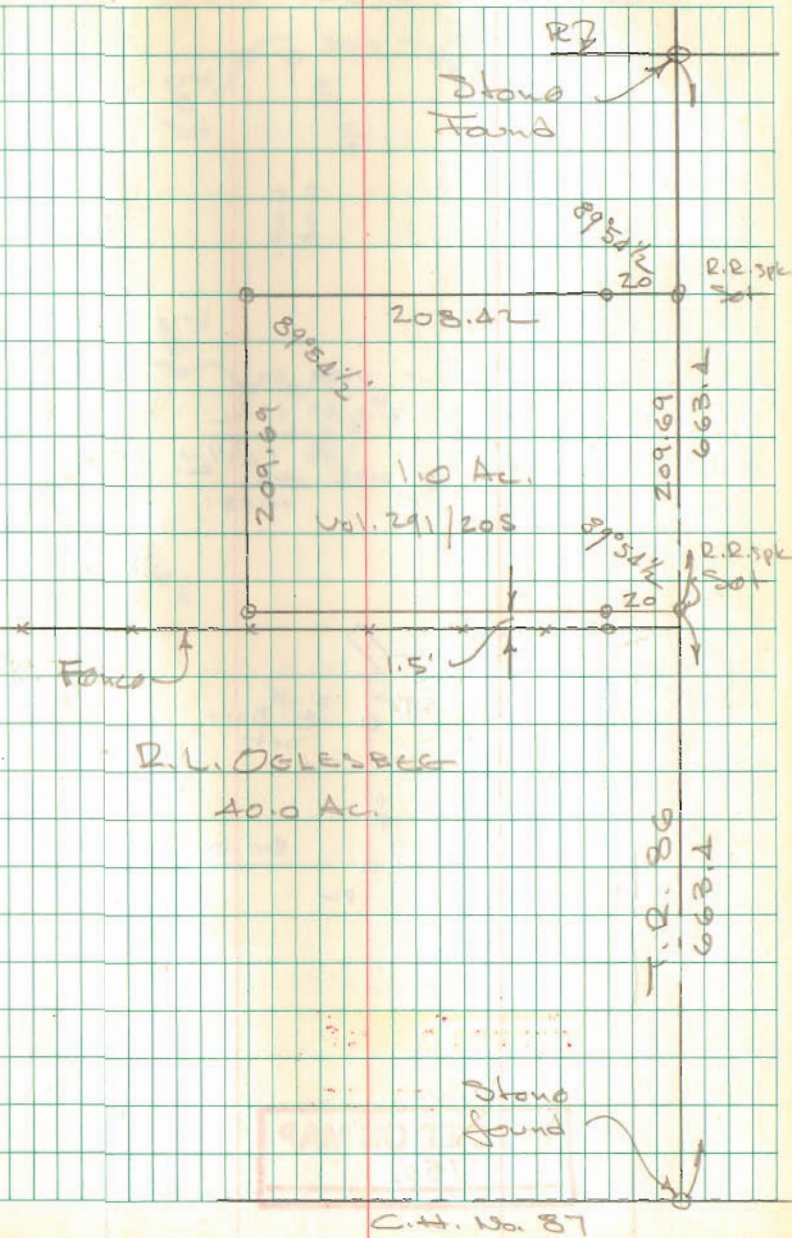 RZ
Stone
Found
89°54½
20
R.R. spk
Set
208.42
89°54½'
209.69
209.69
663.4
1.0 Ac.
Vol. 291/205
89°54½
20
R.R. spk
Set
1.5'
Fence
R.L. OGLESBEE
40.0 Ac.
T.R. 86
663.4
Stone
found
C.H. No. 87